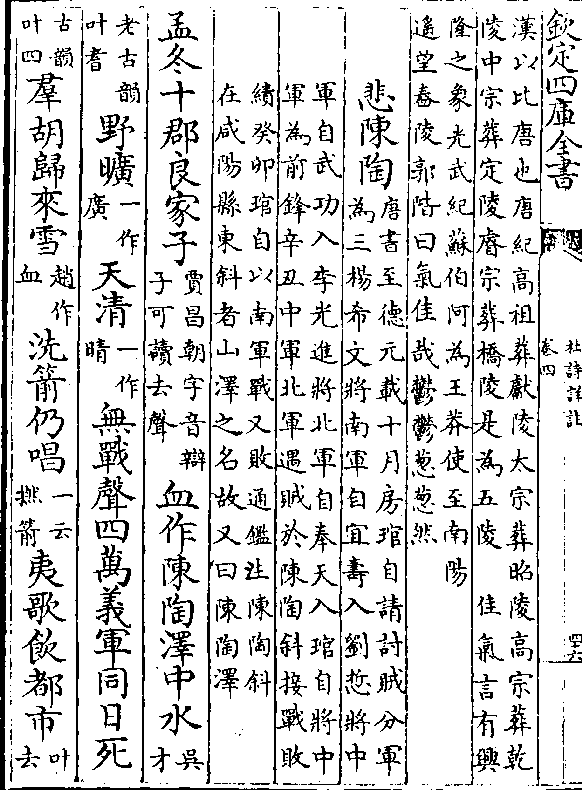 欽定四庫全書
杜詩詳註
卷四
漢以比唐也唐紀高祖葬獻陵太宗葬昭陵高宗葬乾
陵中宗葬定陵睿宗葬橋陵是為五陵 佳氣言有興
隆之象光武紀蘇伯阿為王莽使至南陽
遥望舂陵郭唶曰氣佳哉鬱鬱葱葱然
悲陳陶唐書至德元載十月房琯自請討賊分軍
為三楊希文將南軍自宜壽入劉悊將中
軍自武功入李光進將北軍自奉天入琯自將中
軍為前鋒辛丑中軍北軍遇賊於陳陶斜接戰敗
績癸卯琯自以南軍戰又敗通鑑注陳陶斜
在咸陽縣東斜者山澤之名故又曰陳陶澤
孟冬十郡良家子賈昌朝字音辯子可讀去聲血作陳陶澤中水吳才
老古韻叶耆野曠一作廣天清一作晴無戰聲四萬義軍同日死
古韻叶四羣胡歸來雪趙作血洗箭仍唱一云撚箭夷歌飲都市叶去